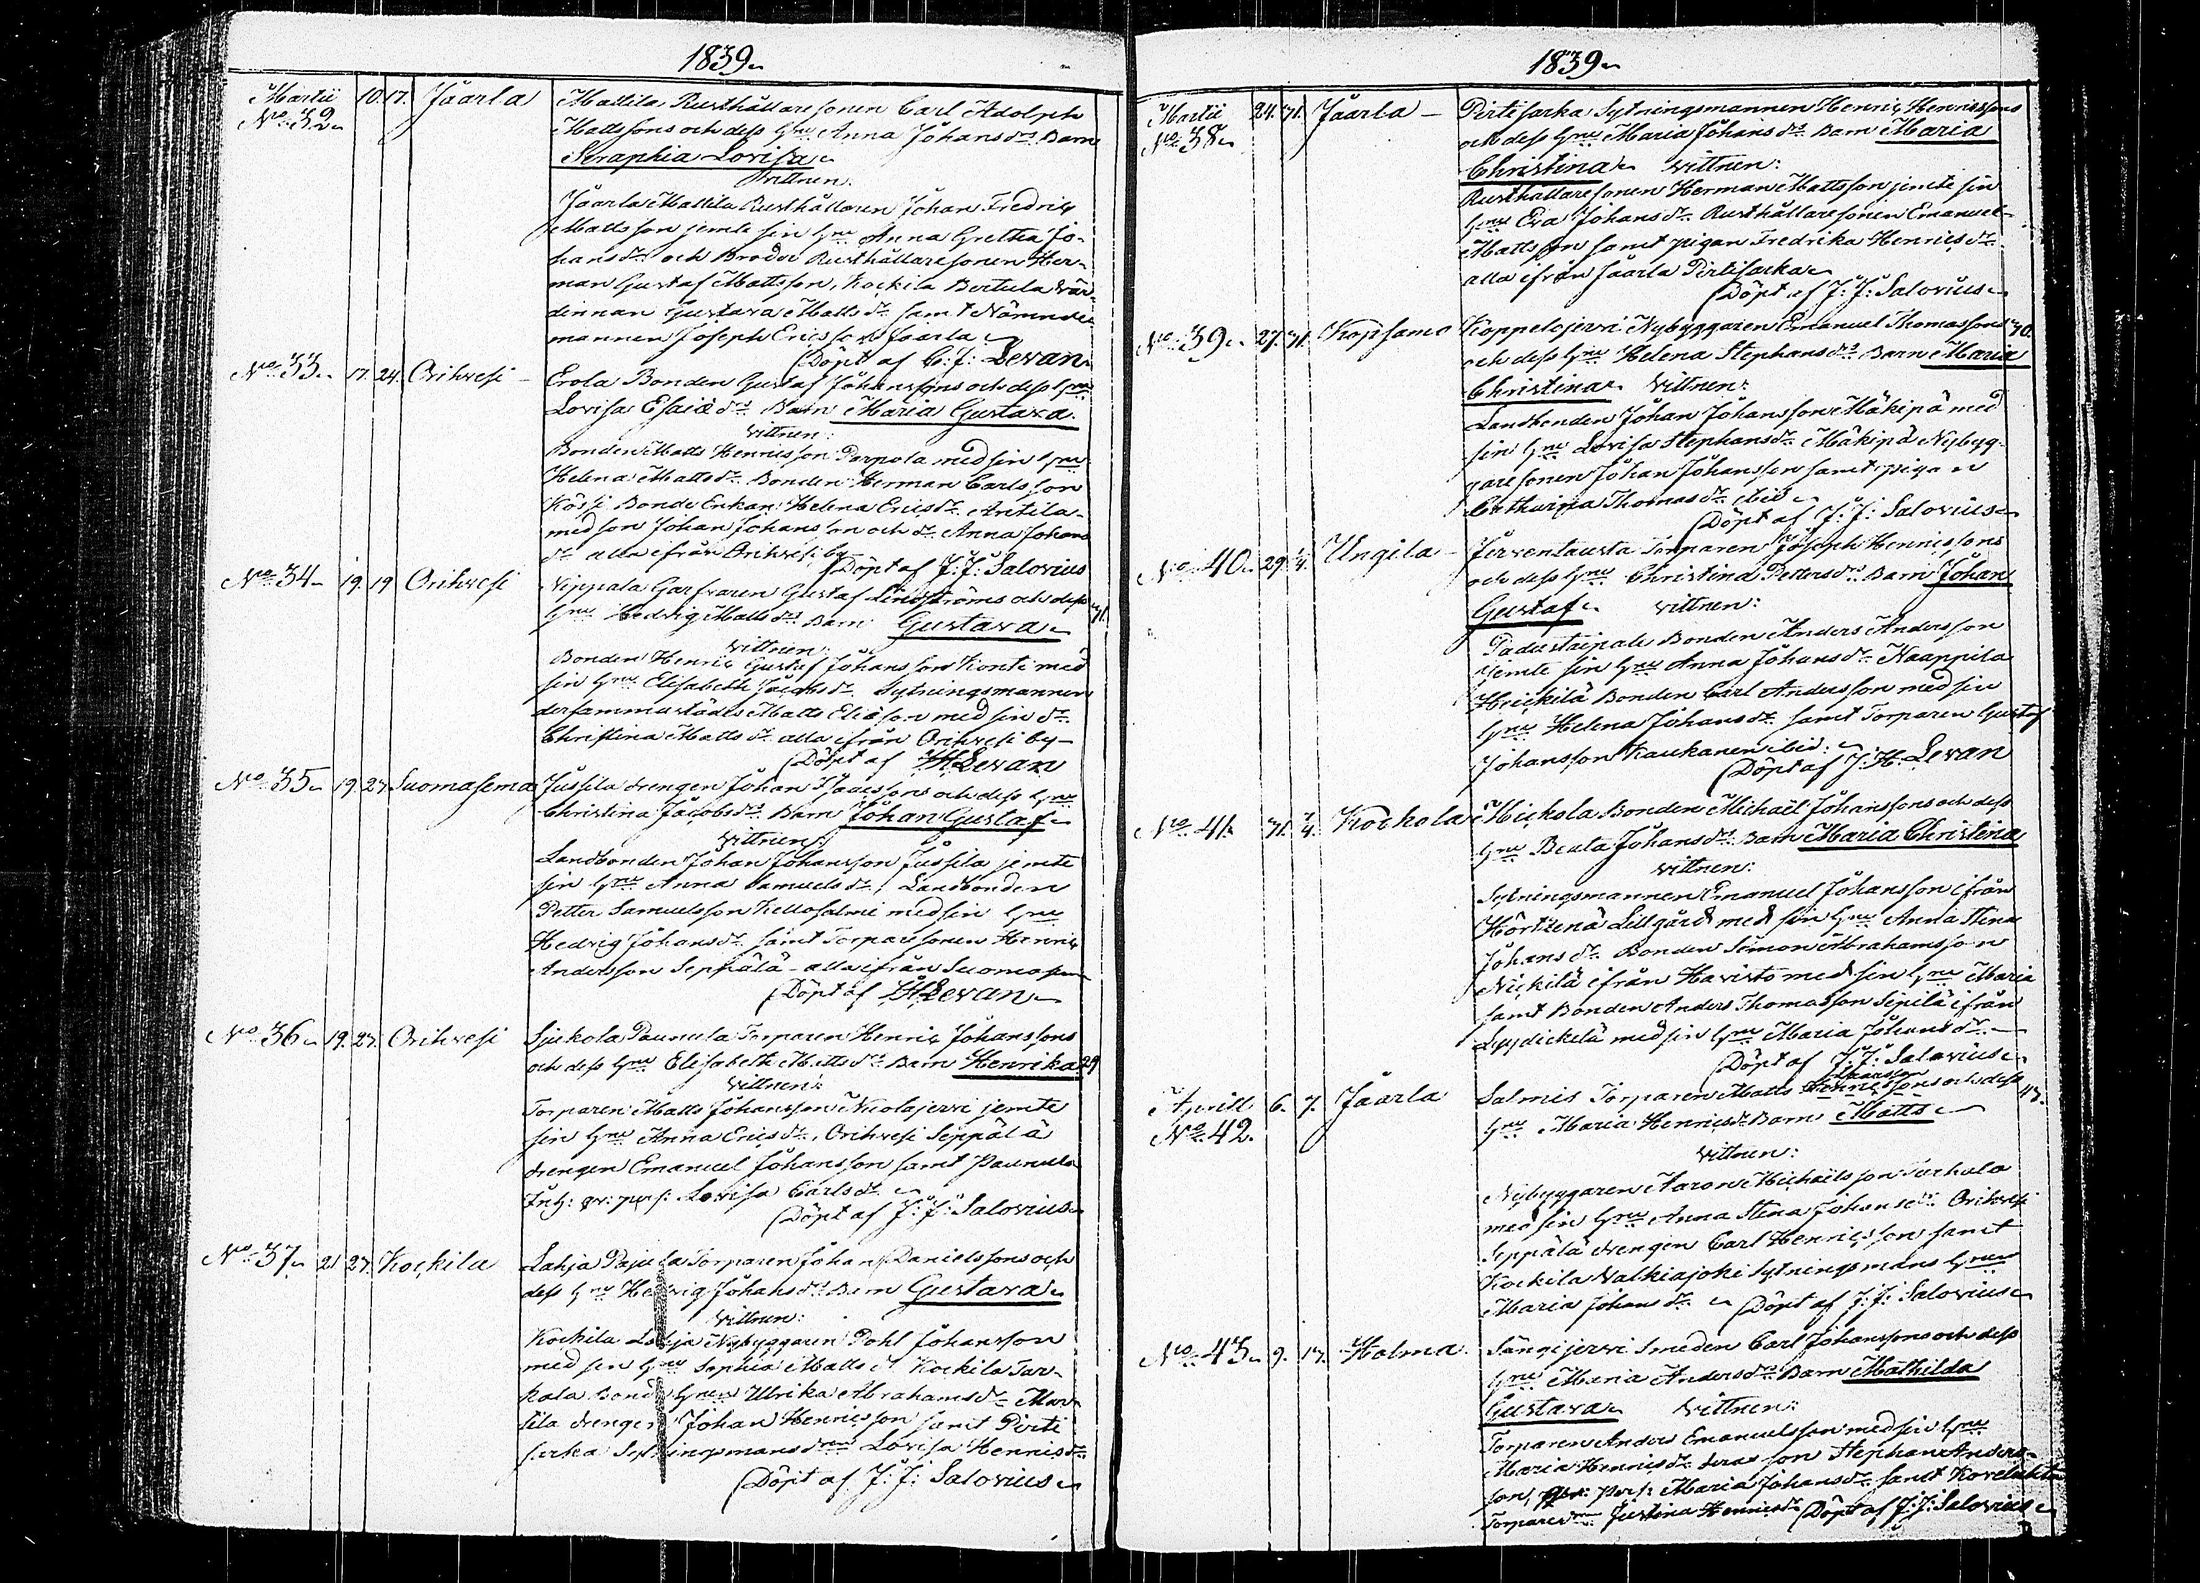 1839
Martii 10. 17. Jäärla Mattila Rusthållare sonen Carl Adolph
No 32 Mattssons och dess Hru Anna Johansdr Barn
Seraphia Lovisa
Vittnen:
Jäärla Mattila Rusthållaren Johan Fredric
Mattsson jemte sin Hru Anna Gretha Jo-
hansdr och Broder Rusthållare sonen Her-
man Gustaf Mattsson, Kockila Bertula Vär-
dinnan Gustava Mattsdr samt Nämnde
mannen Joseph Ericsson Jäärla
Döpt af C: J: Levan
No 33 17. 24. Orihvesi Erola Bonden Gustaf Johanssons och dess Hru
Lovisa Esaiædr Barn Maria Gustava
Vittnen:
Bonden Matts Henricsson Porpola med sin Hru
Helena Mattsdr Bonden Herman Carlsson
Kössi Bonde Enkan Helena Ericsdr Anttila
med son Johan Johansson och dr Anna Johans
dr alla ifrån Orihvesi by
Döpt af J: J: Salovius
No 34 19. 19 Orihvesi Vippala Garfvaren Gustaf Lindströms och dess
Hru Hedvig Mattsdr Barn Gustava 31.
Vittnen:
Bonden Henric Gustaf Johansson Konti med
sin Hru Elisabeth Jacobsdr Sytningsmannen
dersammastädes Matts Eliæson med sin dr
Christina Mattsdr alla ifrån Orihvesi by
Döpt af JH Levan
No 35 19. 27 Suomasema Jussila drengen Johan Isacssons och dess Hru
Christina Jacobsdr Barn Johan Gustaf
Vittnen:
Landbonden Johan Johansson Jussila jemte
sin Hru Anna Samuelsdr, Landbonden
Petter Samuelsson Kellosalmi med sin Hru
Hedvig Johansdr samt Torpare sonen Henric
Andersson Seppälä alla ifrån Suomasema
Döpt af JH Levan
No 36 19. 27. Orihvesi Sjukola Paunula Torparen Henric Johanssons
och dess Hru Elisabeth Mattsdr Barn Henrika 29
Vittnen:
Torparen Matts Johansson Nuolajervi jemte
sin Hru Anna Ericsdr, Orihvesi Seppälä
drengen Emanuel Johansson samt Paunula
qv: pers: Lovisa Carlsdr
Döpt af J: J: Salovius
No 37 21 27. Kockila Lahja Pajula Torparen Johan Danielssons och
dess Hru Hedvig Johansdr Barn Gustava
Vittnen:
Kockila Lahja Nybyggaren Pohl Johansson
med sin Hru Sophia Mattsdr Kockila Tar-
kala Bonde Hrun Ulrika Abrahamsdr Mar-
tila drengen Johan Henricsson samt Pirti
sarka Sytningsmans drn Lovisa Henricsdr
Döpt af J: J: Salovius
1839
Martii 24. 31. Jäärla Pirtisarka Sytningsmannen Henric Henricssons
No 38 och dess Hru Maria Johansdr Barn Maria
Christina Vittnen:
Rusthållare sonen Herman Mattsson jemte sin
Hru Eva Johansdr Rusthållare sonen Emanuel
Mattsson samt pigan Fredrika Henricsdr
alla ifrån Jäärla Pirtisarka
Döpt af J: J: Salovius
No 39 27. 31. Kopsamo Koppelojervi Nybyggaren Emanuel Thomassons 30.
och dess Hru Helena Stephansdr Barn Maria
Christina Vittnen:
Landbonden Johan Johansson Mäkipä med
sin Hru Lovisa Stephansdr Mäkipä Nybyg-
gare sonen Johan Johansson samt pigan
Catharina Thomasdr ibid
Döpt af J: J: Salovius
No 40 29. 1/4. Ungila Jerventausta Torparen Joseph Henricssons
och dess Hru Christina Pettersdr Barn Johan
Gustaf Vittnen:
Padustaipale Bonden Anders Andersson
jemte sin Hru Anna Johansdr Naappila
Heickilä Bonden Carl Andersson med sin
Hru Helena Johansdr samt Torparen Gustaf
Johansson Kaukanen ibid:
Döpt af J: H: Levan
No 41. 31. 7/4. Kockola Mickola Bonden Michael Johanssons och dess
Hru Beata Johansdr Barn Maria Christina
Vittnen:
Sytningsmannen Emanuel Johansson ifrån
Hörtzenä Lillgård med sin Hru Anna Stina
Johansdr Bonden Simon Abrahamsson
Nickilä ifrån Havisto med sin Hru Maria
samt Bonden Anders Thomasson Sipilä ifrån
Lyydickelä med sin Hru Maria Johansdr
Döpt af J: J: Salovius
Aprill 6. 7. Jäärla Salmis Torparen Matts Henricssons och dess 13.
No 42. Hru Maria Henricsdr Barn Matts
Vittnen:
Nybyggaren Aaron Michaelsson Tarhala
med sin Hru Anna Stina Johansdr Orihvesi
Seppälä drengen Carl Henricsson samt
Kockila Valkiajoki Sytningsmans Hrun
Maria Johansdr Döpt af J: J: Salovius
No 43 9. 13. Holma Sängijervi Smeden Carl Johanssons och dess
Hru Maria Andersdr Barn Mathilda
Gustava Vittnen:
Torparen Anders Emanuelsson med sin Hru
Maria Henricsdr deras son Stephan Anders-
son, qv: pers: Maria Johansdr samt Kovelahti
Torparedrn Justina Henricsdr Döpt af J: J: Salovius